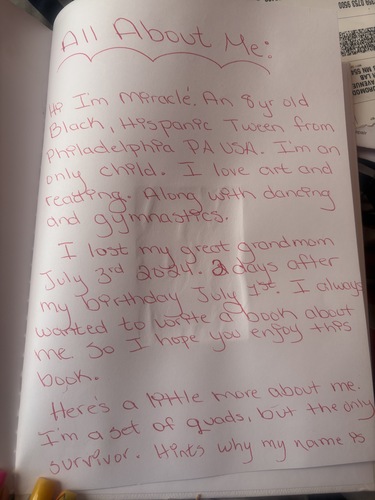 All About Me:
Hi I'm Miracle'. An 8yr old
Black, Hispanic Tween from
Philadelphia PA USA. I'm an
only child. I love art and
reading. Along with dancing
and gymnastics.
I lost my great grandmom
July 3rd 2024. 2 days after
my birthday July 1st. I always
wanted to write a book about
me. So I hope you enjoy this
book.
Here's a little more about me.
I'm a set of quads, but the only
survivor. Hints why my name is